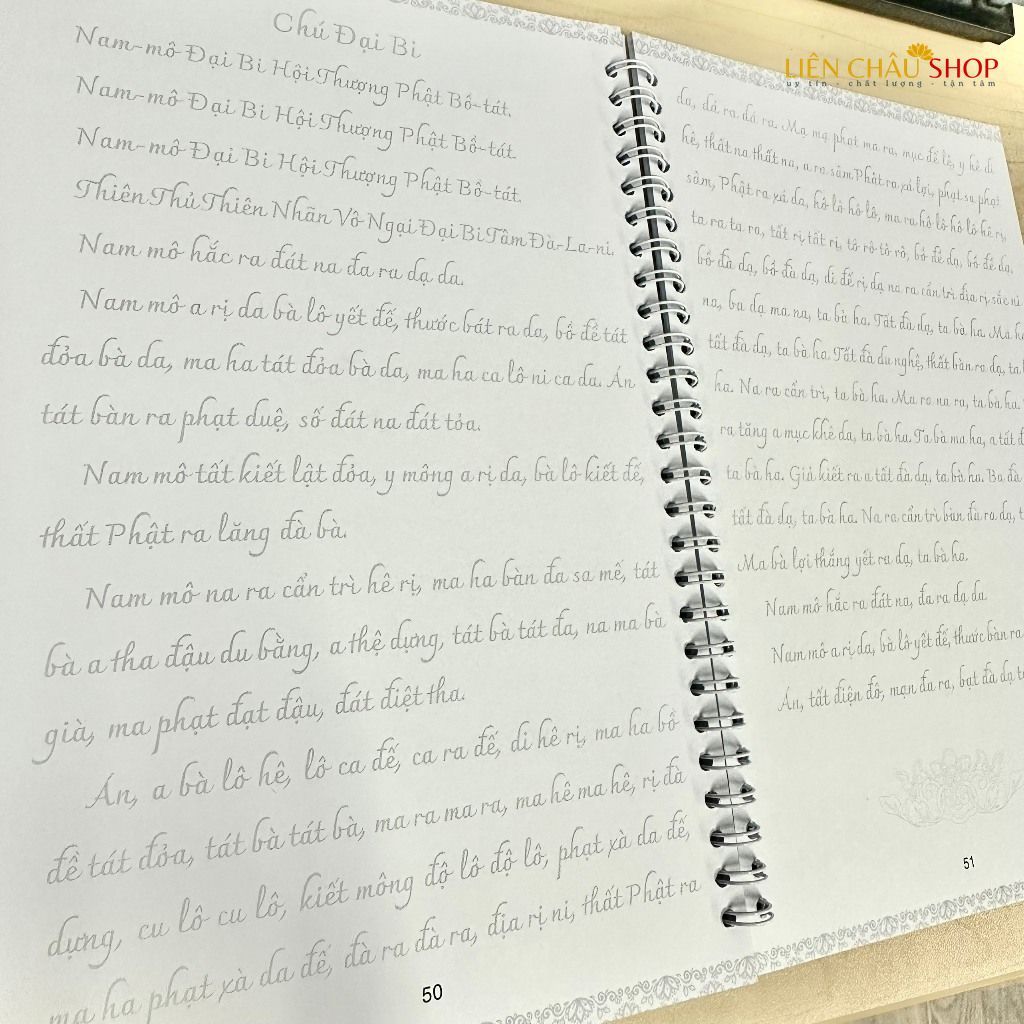 LIÊN CHÂU SHOP
uy tín - chất lượng - tận tâm
Chú Đại Bi
Nam-mô Đại Bi Hội Thượng Phật Bồ-tát.
Nam-mô Đại Bi Hội Thượng Phật Bồ-tát.
Nam-mô Đại Bi Hội Thượng Phật Bồ-tát.
Thiên Thủ Thiên Nhãn Vô Ngại Đại Bi Tâm Đà-La-ni.
Nam mô hắc ra đát na đa ra dạ da.
Nam mô a rị da bà lô yết đế, thước bát ra da, bồ đề tát
đỏa bà da, ma ha tát đỏa bà da, ma ha ca lô ni ca da. Án
tát bàn ra phạt duệ, số đát na đát tỏa.
Nam mô tất kiết lật đỏa, y mông a rị da, bà lô kiết đế,
thất Phật ra lăng đà bà.
Nam mô na ra cẩn trì hê rị, ma ha bàn đa sa mế, tát
bà a tha đậu du bằng, a thệ dựng, tát bà tát đa, na ma bà
già, ma phạt đạt đậu, đát điệt tha.
Án, a bà lô hê, lô ca đế, ca ra đế, di hê rị, ma ha bồ
đề tát đỏa, tát bà tát bà, ma ra ma ra, ma hê ma hê, rị đà
dựng, cu lô cu lô, kiết mông độ lô độ lô, phạt xà da đế,
ma ha phạt xà da đế, đà ra đà ra, địa rị ni, thất Phật ra
50
da, dá ra dá ra. Mạ mạ phạt ma ra, mục đế lệ, y hê di
hê, thất na thất na, a ra sâm Phật ra xá lợi, phạt sa phạt
sâm, Phật ra xá da, hô lô hô lô, ma ra hô lô hô lô hê rị,
ta ra ta ra, tất rị tất rị, tô rô tô rô, bồ đề dạ, bồ đề dạ,
bồ đà dạ, bồ đà dạ, di đế rị dạ na ra cẩn trì địa rị sắc ni
na, ba dạ ma na, ta bà ha. Tất đà dạ, ta bà ha. Ma h
tất đà dạ, ta bà ha. Tất đà du nghệ, thất bàn ra dạ, ta
ha. Na ra cẩn trì, ta bà ha. Ma ra na ra, ta bà ha.
ra tăng a mục khê da, ta bà ha. Ta bà ma ha, a tất đ
ta bà ha. Giả kiết ra a tất đà dạ, ta bà ha. Ba đà
tất đà dạ, ta bà ha. Na ra cẩn trì bàn đà ra dạ, t
Ma bà lợi thắng yết ra dạ, ta bà ha.
Nam mô hắc ra đát na, đa ra dạ da.
Nam mô a rị da, bà lô yết đế, thước bàn ra
Án, tất điện đô, mạn đa ra, bạt đà dạ t
51